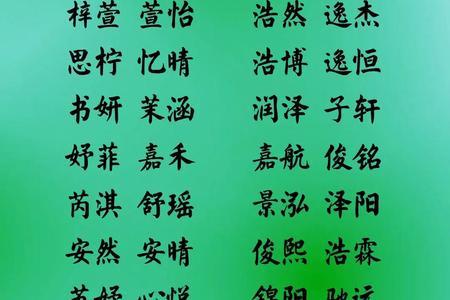 梓萱 萱怡 浩然 逸杰
思柠 忆晴 浩博 逸恒
书妍 茉涵 润泽 子轩
妤菲 嘉禾 嘉航 俊铭
芮淇 舒瑶 景泓 泽阳
安然 安晴 俊熙 浩霖